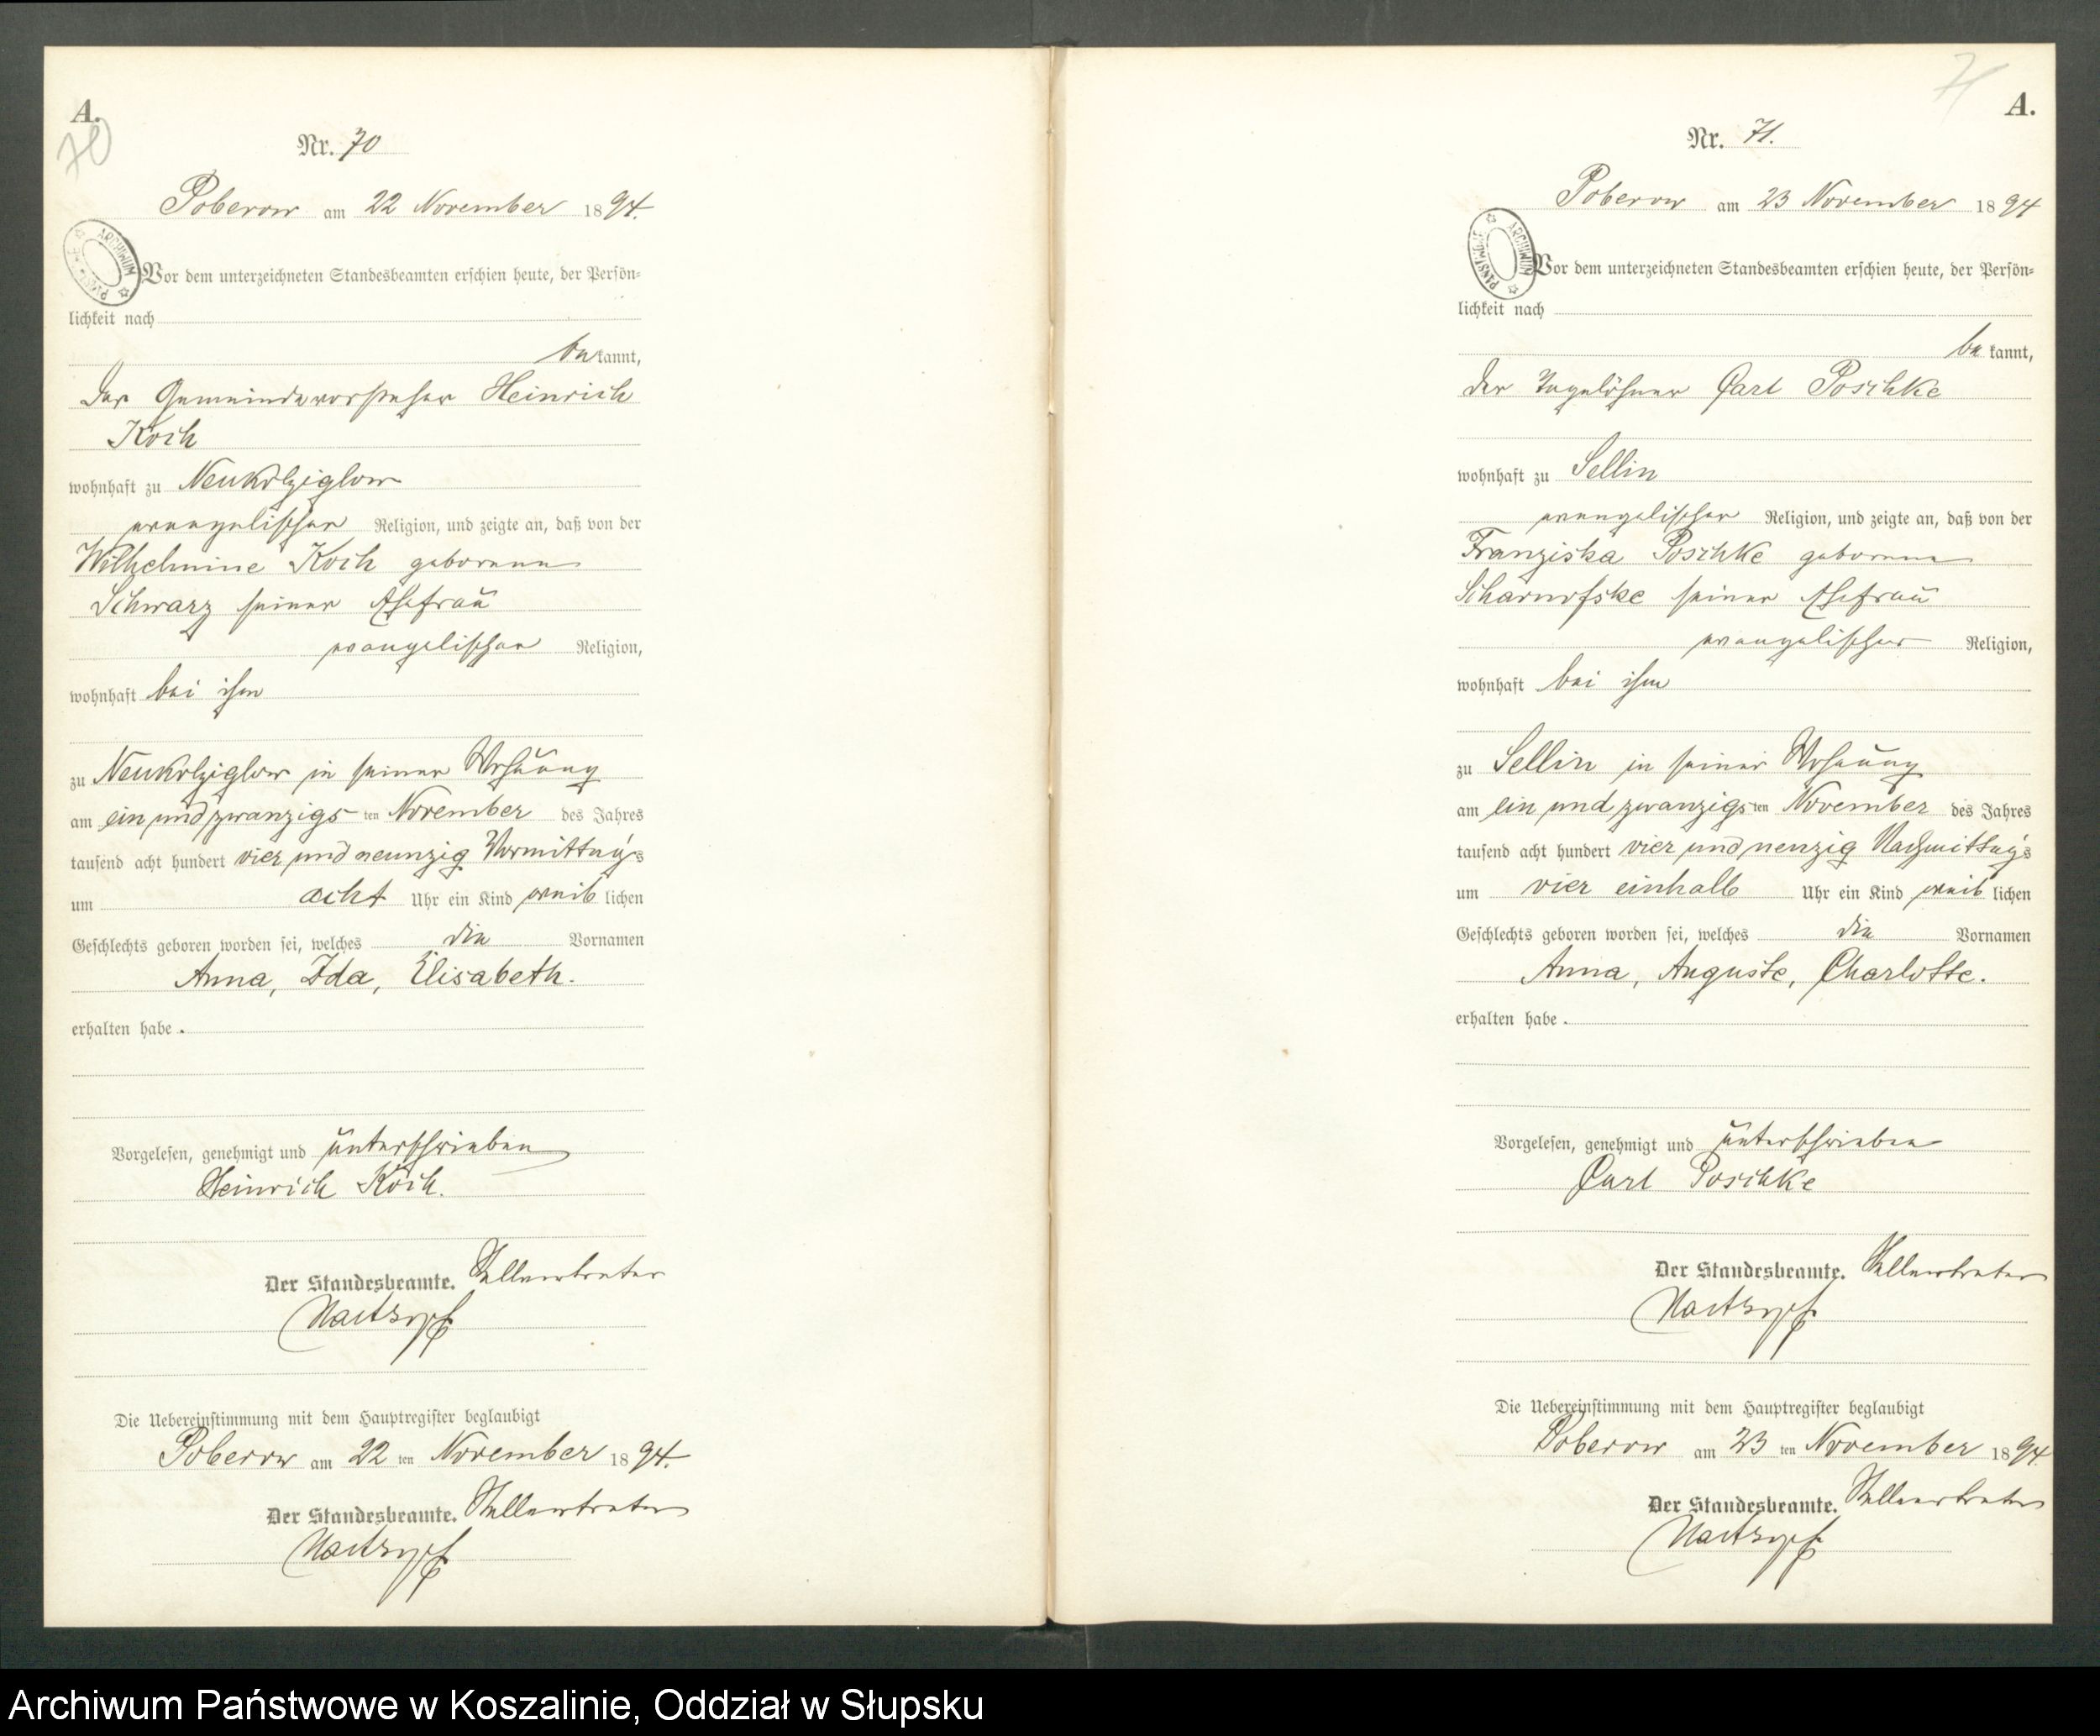 A.
70
Nr. 70
Poberow am 22 November 1894.
Vor dem unterzeichneten Standesbeamten erschien heute, der Persön-
lichkeit nach
bekannt,
der Gemeindevorsteher Heinrich
Koch
wohnhaft zu Neukolziglow
evangelischer Religion, und zeigte an, daß von der
Wilhelmine Koch geborenen
Schwarz seiner Ehefrau
evangelischer Religion,
wohnhaft bei ihm
zu Neukolziglow in seiner Wohnung
am ein und zwanzigsten November des Jahres
tausend acht hundert vier und neunzig Vormittags
um acht Uhr ein Kind weiblichen
Geschlechts geboren worden sei, welches die Vornamen
Anna, Ida, Elisabeth.
erhalten habe.
Vorgelesen, genehmigt und unterschrieben
Heinrich Koch.
Der Standesbeamte. Stellvertreter
Die Uebereinstimmung mit dem Hauptregister beglaubigt
Poberow am 22 ten November 1894.
Der Standesbeamte. Stellvertreter
71
A.
Nr. 71.
Poberow am 23 November 1894
Vor dem unterzeichneten Standesbeamten erschien heute, der Persön-
lichkeit nach
bekannt,
der Tagelöhner Carl Poschke
wohnhaft zu Sellin
evangelischer Religion, und zeigte an, daß von der
Franziska Poschke geborenen
seiner Ehefrau
evangelischer Religion,
wohnhaft bei ihm
zu Sellin in seiner Wohnung
am ein und zwanzigsten November des Jahres
tausend acht hundert vier und nenzig Nachmittags
um vier einhalb Uhr ein Kind weiblichen
Geschlechts geboren worden sei, welches die Vornamen
Anna, Auguste, Charlotte.
erhalten habe.
Vorgelesen, genehmigt und unterschrieben
Carl Poschke
Der Standesbeamte. Stellvertreter
Die Uebereinstimmung mit dem Hauptregister beglaubigt
Poberow am 23 ten November 1894.
Der Standesbeamte. Stellvertreter
Archiwum Państwowe w Koszalinie, Oddział w Słupsku